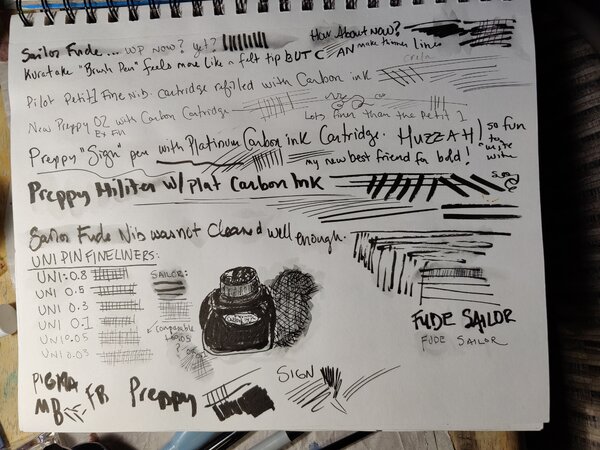 Sailor Fude... WP now? yet? How About Now?
Kuratake "Brush Pen" feels more like a felt tip BUT CAN make thinner lines
Pilot Petit1 Fine Nib. Cartridge refilled with Carbon ink
New Preppy 02 with Carbon Cartridge Lots finer than the Petit 1
Preppy "Sign" pen with Platinum Carbon ink Cartridge. HUZZAH! so fun to write with
my new best friend for bold!
Preppy Hiliter w/ Plat Carbon Ink
Sailor Fude Nib wasn't Cleaned well enough.
UNI PIN FINELINERS:
UNI: 0.8
UNI 0.5
UNI 0.3
UNI 0.1
UNI 0.05
UNI 0.03
SAILOR:
comparable to 0.05
FUDE SAILOR
FUDE SAILOR
PIGMA
MB FB
Preppy
SIGN